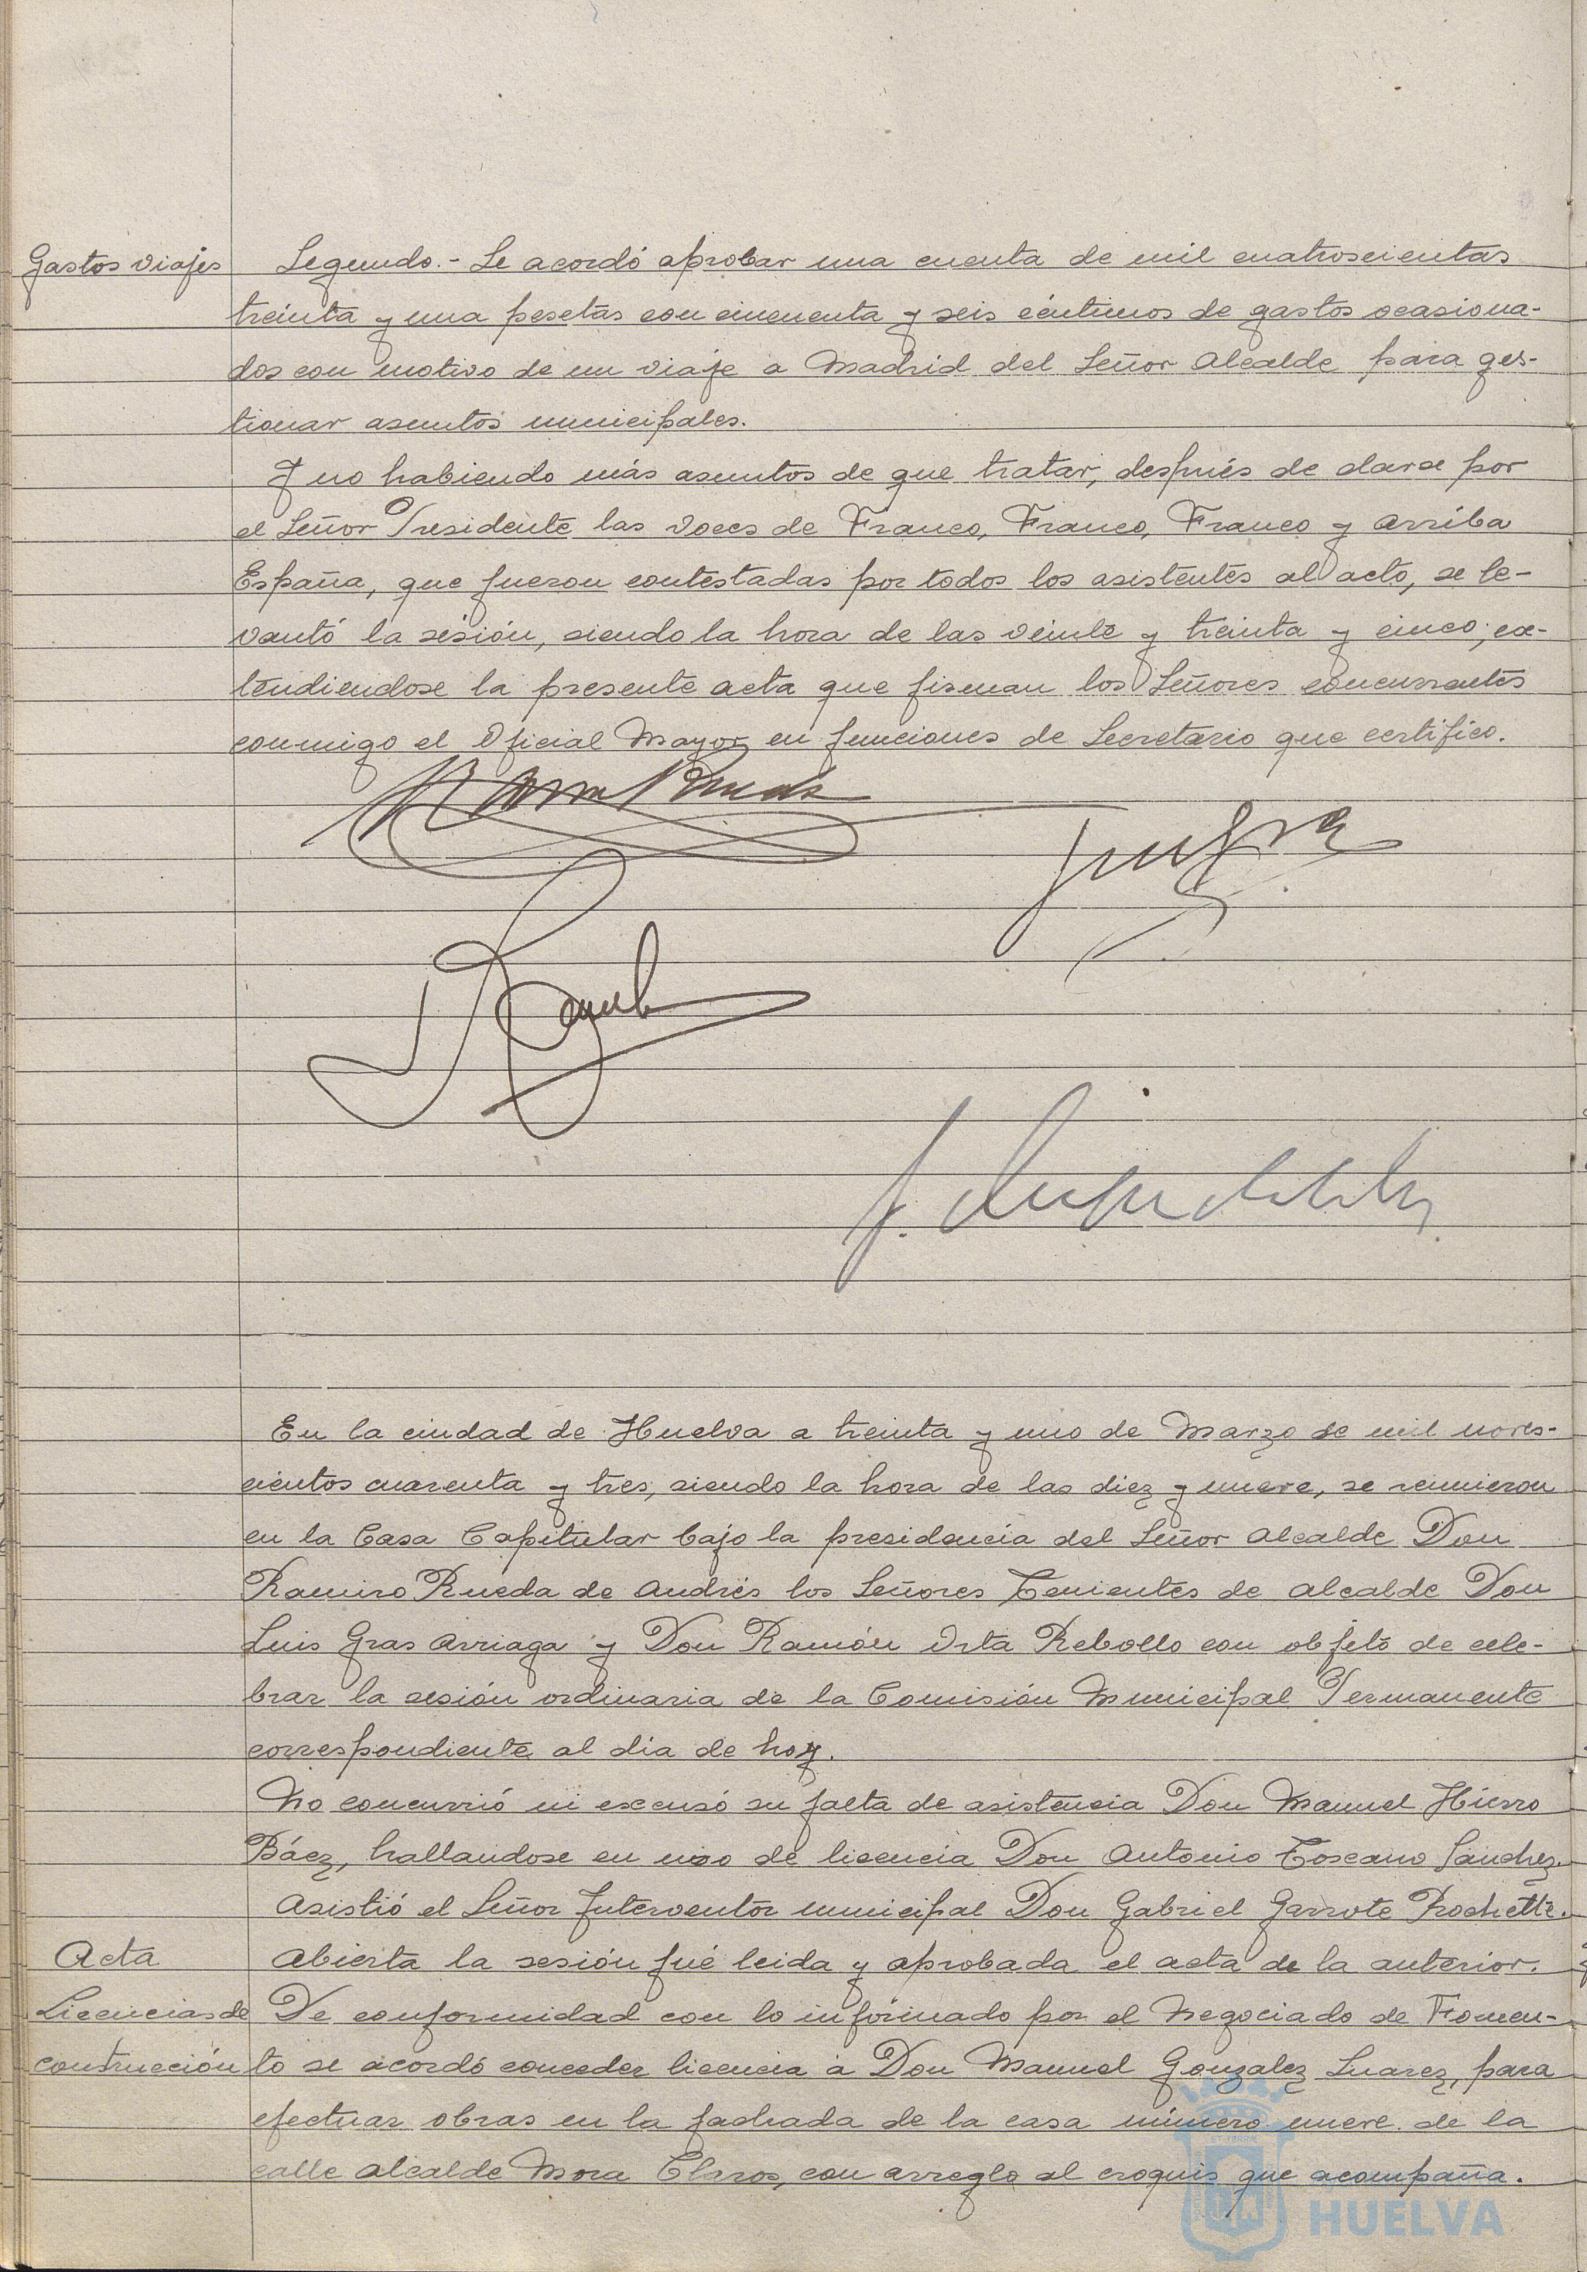 Gastos viajes
Segundo.- Se acordó aprobar una cuenta de mil cuatroscientas
treinta y una pesetas con cincuenta y seis céntimos de gastos ocasiona-
dos con motivo de un viaje a Madrid del Señor Alcalde para ges-
tionar asuntos municipales.
Y no habiendo más asuntos de que tratar, después de darse por
el Señor Presidente las voces de Franco, Franco, Franco y Arriba
España, que fueron contestadas por todos los asistentes al acto, se le-
vantó la sesión, siendo la hora de las veinte y treinta y cinco; ex-
tendiendose la presente acta que firman los Señores concurrentes
conmigo el Oficial Mayor en funciones de Secretario que certifico.
En la ciudad de Huelva a treinta y uno de Marzo de mil noves-
cientos cuarenta y tres, siendo la hora de las diez y nueve, se reunieron
en la Casa Capitular bajo la presidencia del Señor Alcalde Don
Ramiro Rueda de Andrés los Señores Tenientes de Alcalde Don
Luis Gras Arriaga y Don Ramón Orta Rebollo con objeto de cele-
brar la sesión ordinaria de la Comisión Municipal Permanente
correspondiente al dia de hoy.
No concurrió ni excusó su falta de asistencia Don Manuel Hierro
Báez, hallandose en uso de licencia Don Antonio Toscano Sánchez.
Asistió el Señor Interventor municipal Don Gabriel Garrote Rochette.
Acta
Abierta la sesión fué leida y aprobada el acta de la anterior.
Licencias de
contrucción
De conformidad con lo informado por el Negociado de Fomen-
to se acordó conceder licencia a Don Manuel Gonzalez Suarez, para
efectuar obras en la fachada de la casa número nueve de la
calle Alcalde Mora Claros, con arreglo al croquis que acompaña.
HUELVA